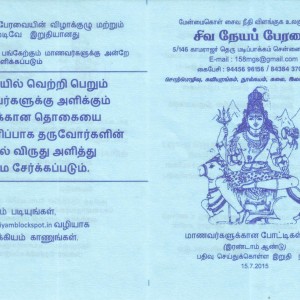 பேரவையின் விழாக்குழு மற்றும்
டவே இறுதியானது
பங்கேற்கும் மாணவர்களுக்கு அன்றே
ளிக்கப்படும்
யில் வெற்றி பெறும்
வர்களுக்கு அளிக்கும்
க்கான தொகையை
ிப்பாக தருவோர்களின்
ல் விருது அளித்து
ம சேர்க்கப்படும்.
ம் படியுங்கள்.
iyamblockspot.in வழியாக
க்கியம் காணுங்கள்.
மேன்மைகொள் சைவ நீதி விளங்குக உல
சிவ நேயப் பேரவை
5/146 காமராஜர் தெரு மடிப்பாக்கம் சென்னை
E-mail : 158mgs@gmail.com
கைபேசி : 94456 98156 / 94384 370
சொற்பொழிவு, கவியரங்கம், நூல்கள், கலை, இலக்
மாணவர்களுக்கான போட்டிகள்
(இரண்டாம் ஆண்டு)
பதிவு செய்துகொள்ள இறுதி
15.7.2015